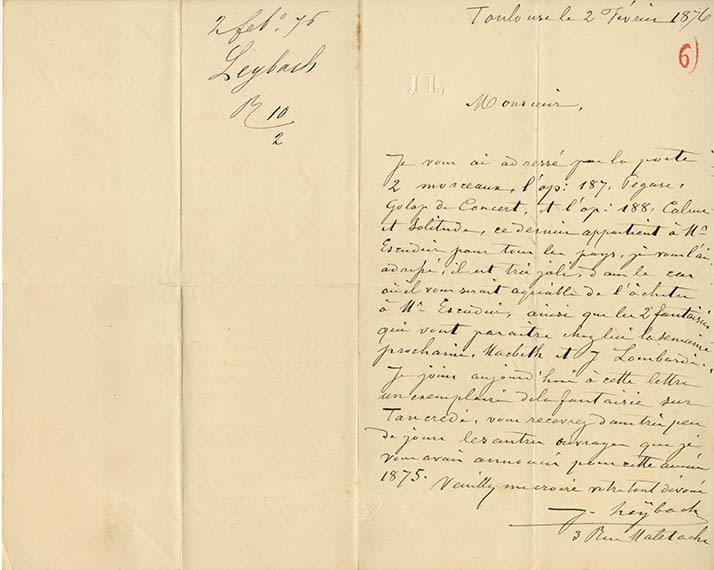 2 feb.º 76
Leybach
R 10
2
Toulouse le 2 Février 1876
6)
JL
Monsieur,
Je vous ai adressé par la poste
2 morceaux, l'op: 187. Pégase,
Galop de Concert, et l'op: 188. Calme
et Solitude, ce dernier appartient à Mr
Escudier pour tous les pays, je vous l'ai
adressé, il est très joli, dans le cas
où il vous serait agréable de l'acheter
à Mr Escudier, ainsi que les 2 fantaisies
qui vont paraitre chez lui la semaine
prochaine, Macbeth et J Lombardi.
Je joins aujourd'hui à cette lettre
un exemplaire de la fantaisie sur
Tancrède, vous recevrez dans très peu
de jours les autres ouvrages que je
vous avais annoncés pour cette année
1875. Veuillez me croire votre tout dévoué
J. Leÿbach
3 Rue Maletache